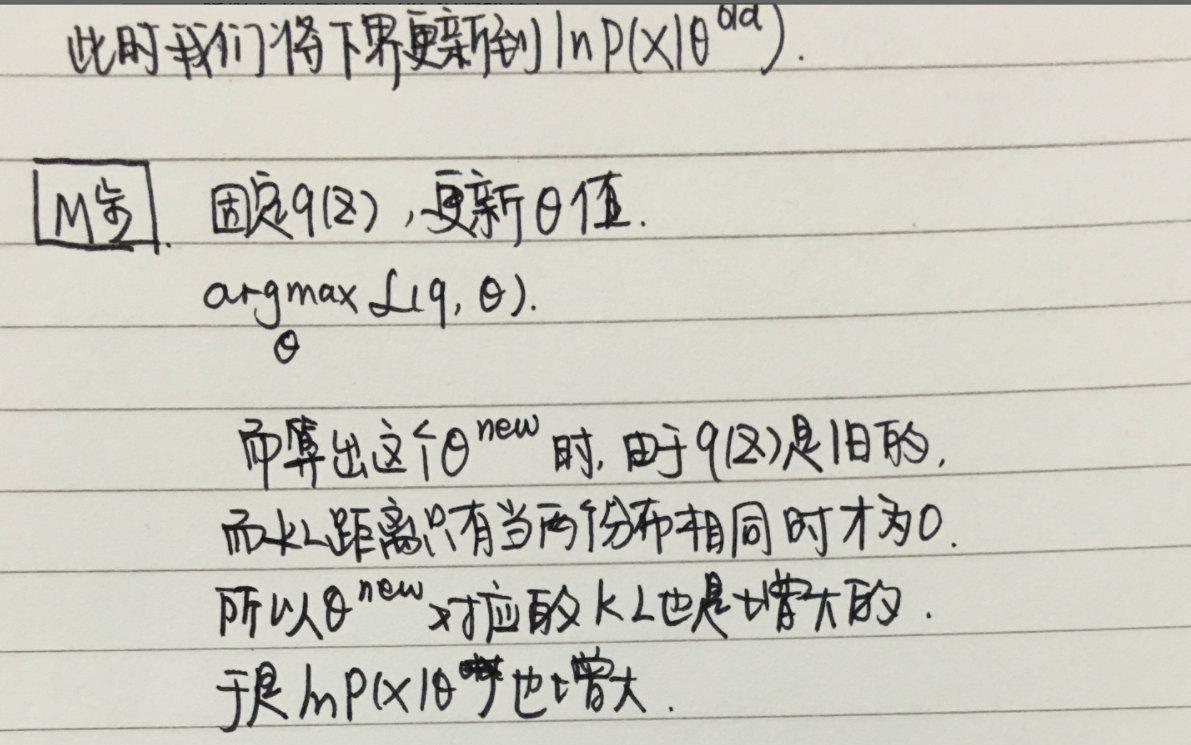 此时我们将下界更新到 ln P(X|θ^old).
M步. 固定q(Z), 更新θ值.
argmax L(q, θ).
θ
而算出这个θ^new时, 由于q(Z)是旧的,
而KL距离只有当两个分布相同时才为0.
所以θ^new对应的KL也是增大的.
于是 ln P(X|θ) 也增大.